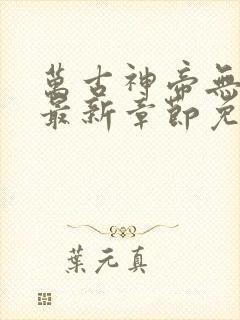 萬古神帝無
最新章節免
葉元真